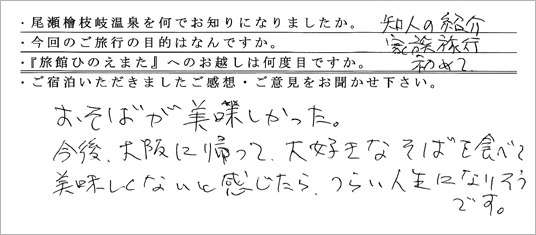 ・尾瀬檜枝岐温泉を何でお知りになりましたか。 知人の紹介
・今回のご旅行の目的はなんですか。 家族旅行
・『旅館ひのえまた』へのお越しは何度目ですか。 初めて
・ご宿泊いただきましたご感想・ご意見をお聞かせ下さい。
おそばが美味しかった。
今後、大阪に帰って、大好きなそばを食べて
美味しくないと感じたら、つらい人生になりそう
です。